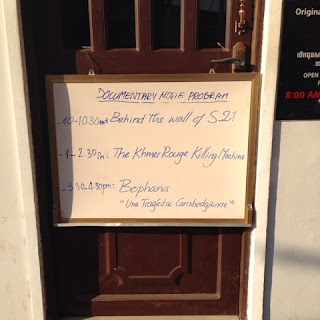 DOCUMENTARY MOVIE PROGRAM
-10-10.30am: Behind the wall of S21
-1-2.30pm: The Khmer Rouge Killing Machine
-3.30-4.30pm: Bophana
"Une Tragédie Cambodgienne"
Original
OPEN
8:00 AM